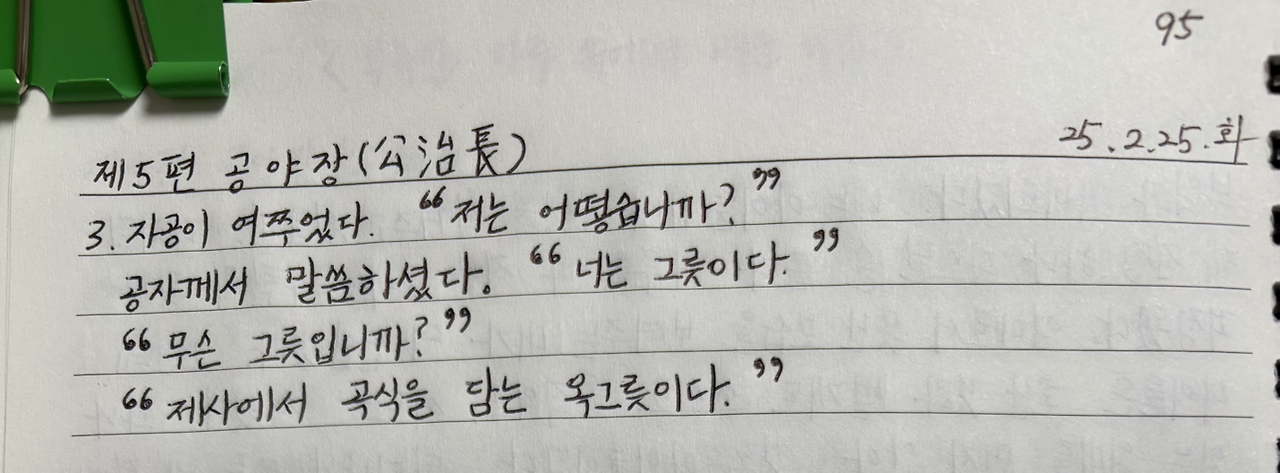 95
25.2.25.화
제5편 공야장(公治長)
3. 자공이 여쭈었다. “저는 어떻습니까?”
공자께서 말씀하셨다. “너는 그릇이다.”
“무슨 그릇입니까?”
“제사에서 곡식을 담는 옥그릇이다.”